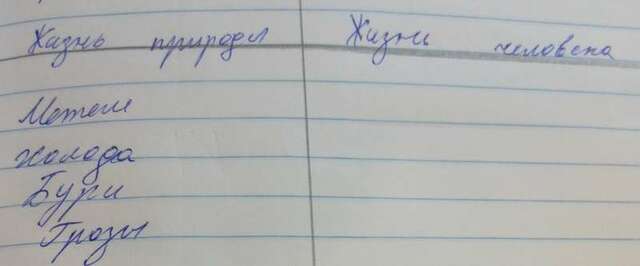 Жизнь природы Жизнь человека
Метели
Холода
Бури
Грозы